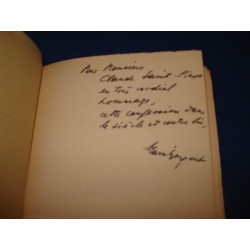 Pour Monsieur
Claude Saint-Pierre
en très cordial
hommage,
cette confession dans
le siècle et contre lui,